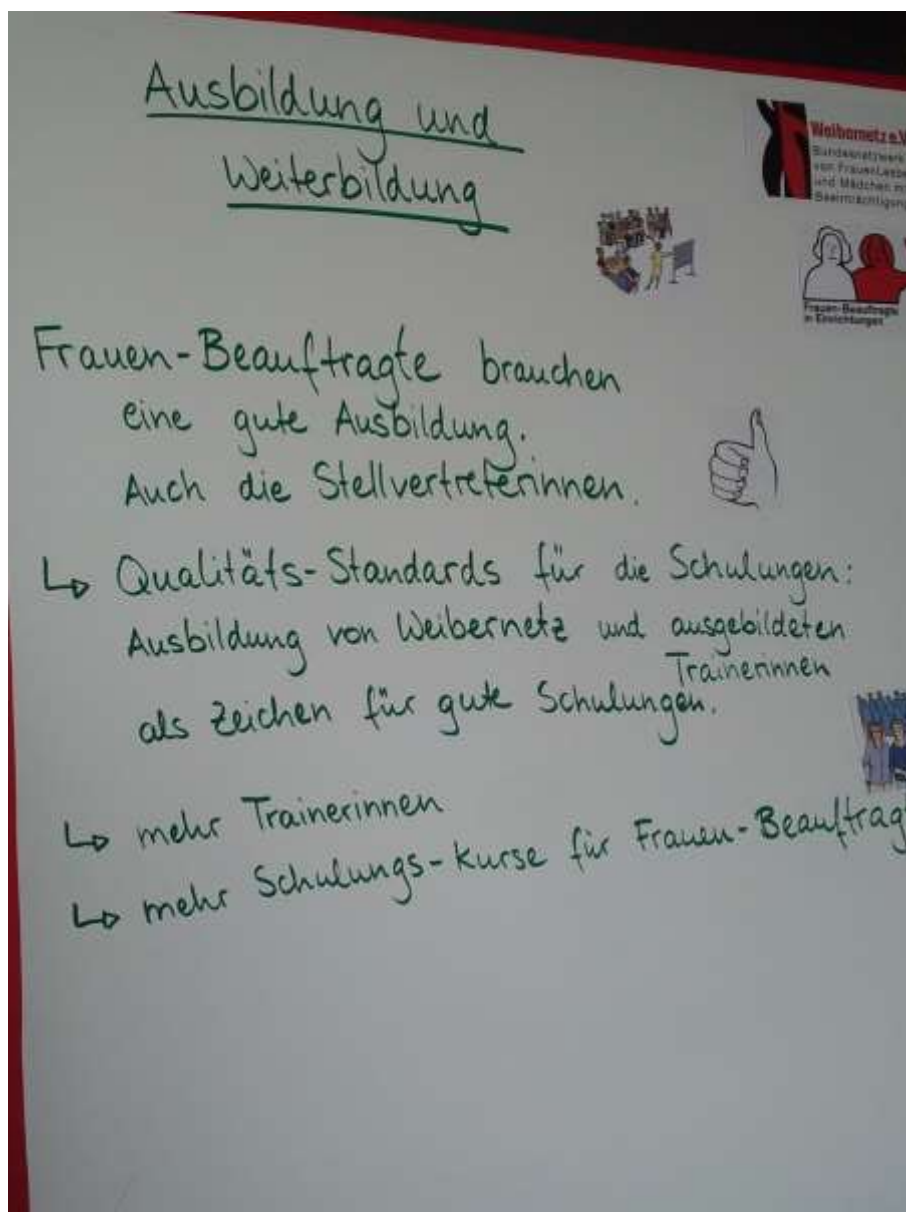 Ausbildung und
Weiterbildung
Weibernetz e.V.
Bundesnetzwerk
von FrauenLesben
und Mädchen mit
Beeinträchtigung
Frauen-Beauftragte
in Einrichtungen
Frauen-Beauftragte brauchen
eine gute Ausbildung.
Auch die Stellvertreterinnen.
↳ Qualitäts-Standards für die Schulungen:
Ausbildung von Weibernetz und ausgebildeten
Trainerinnen
als Zeichen für gute Schulungen.
↳ mehr Trainerinnen
↳ mehr Schulungs-Kurse für Frauen-Beauftragt